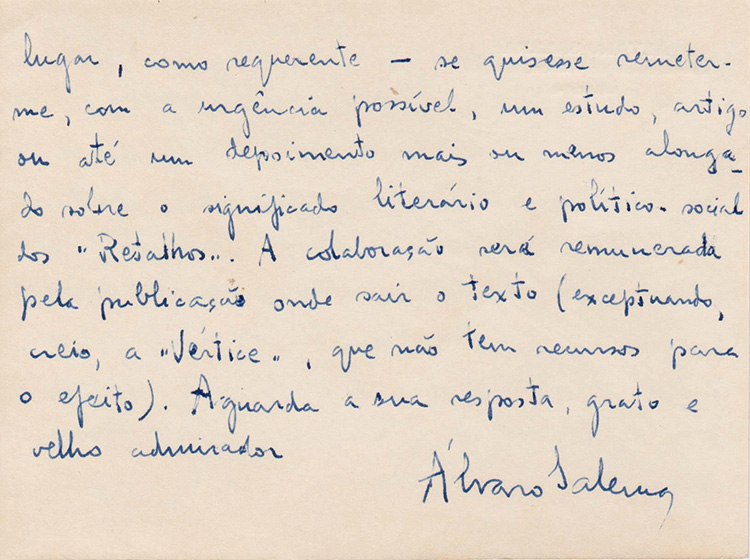 lugar, como requerente — se quisesse remeter-
me, com a urgência possível, um estudo, artigo
ou até um depoimento mais ou menos alonga-
do sobre o significado literário e político-social
dos "Retalhos". A colaboração será remunerada
pela publicação onde sair o texto (exceptuando,
creio, a "Vértice", que não tem recursos para
o efeito). Aguarda a sua resposta, grato e
velho admirador
Álvaro Salema